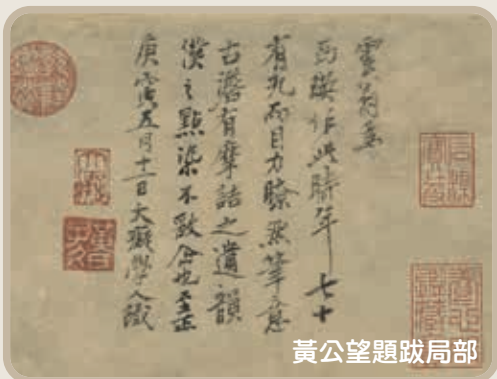 雲翁為
西瑛作此時年七十
有九而目力瞭然筆意
古澹有摩詰之遺韻
僕之點染不敢企也至正
庚寅五月十二日大癡學人識
黃公望題跋局部